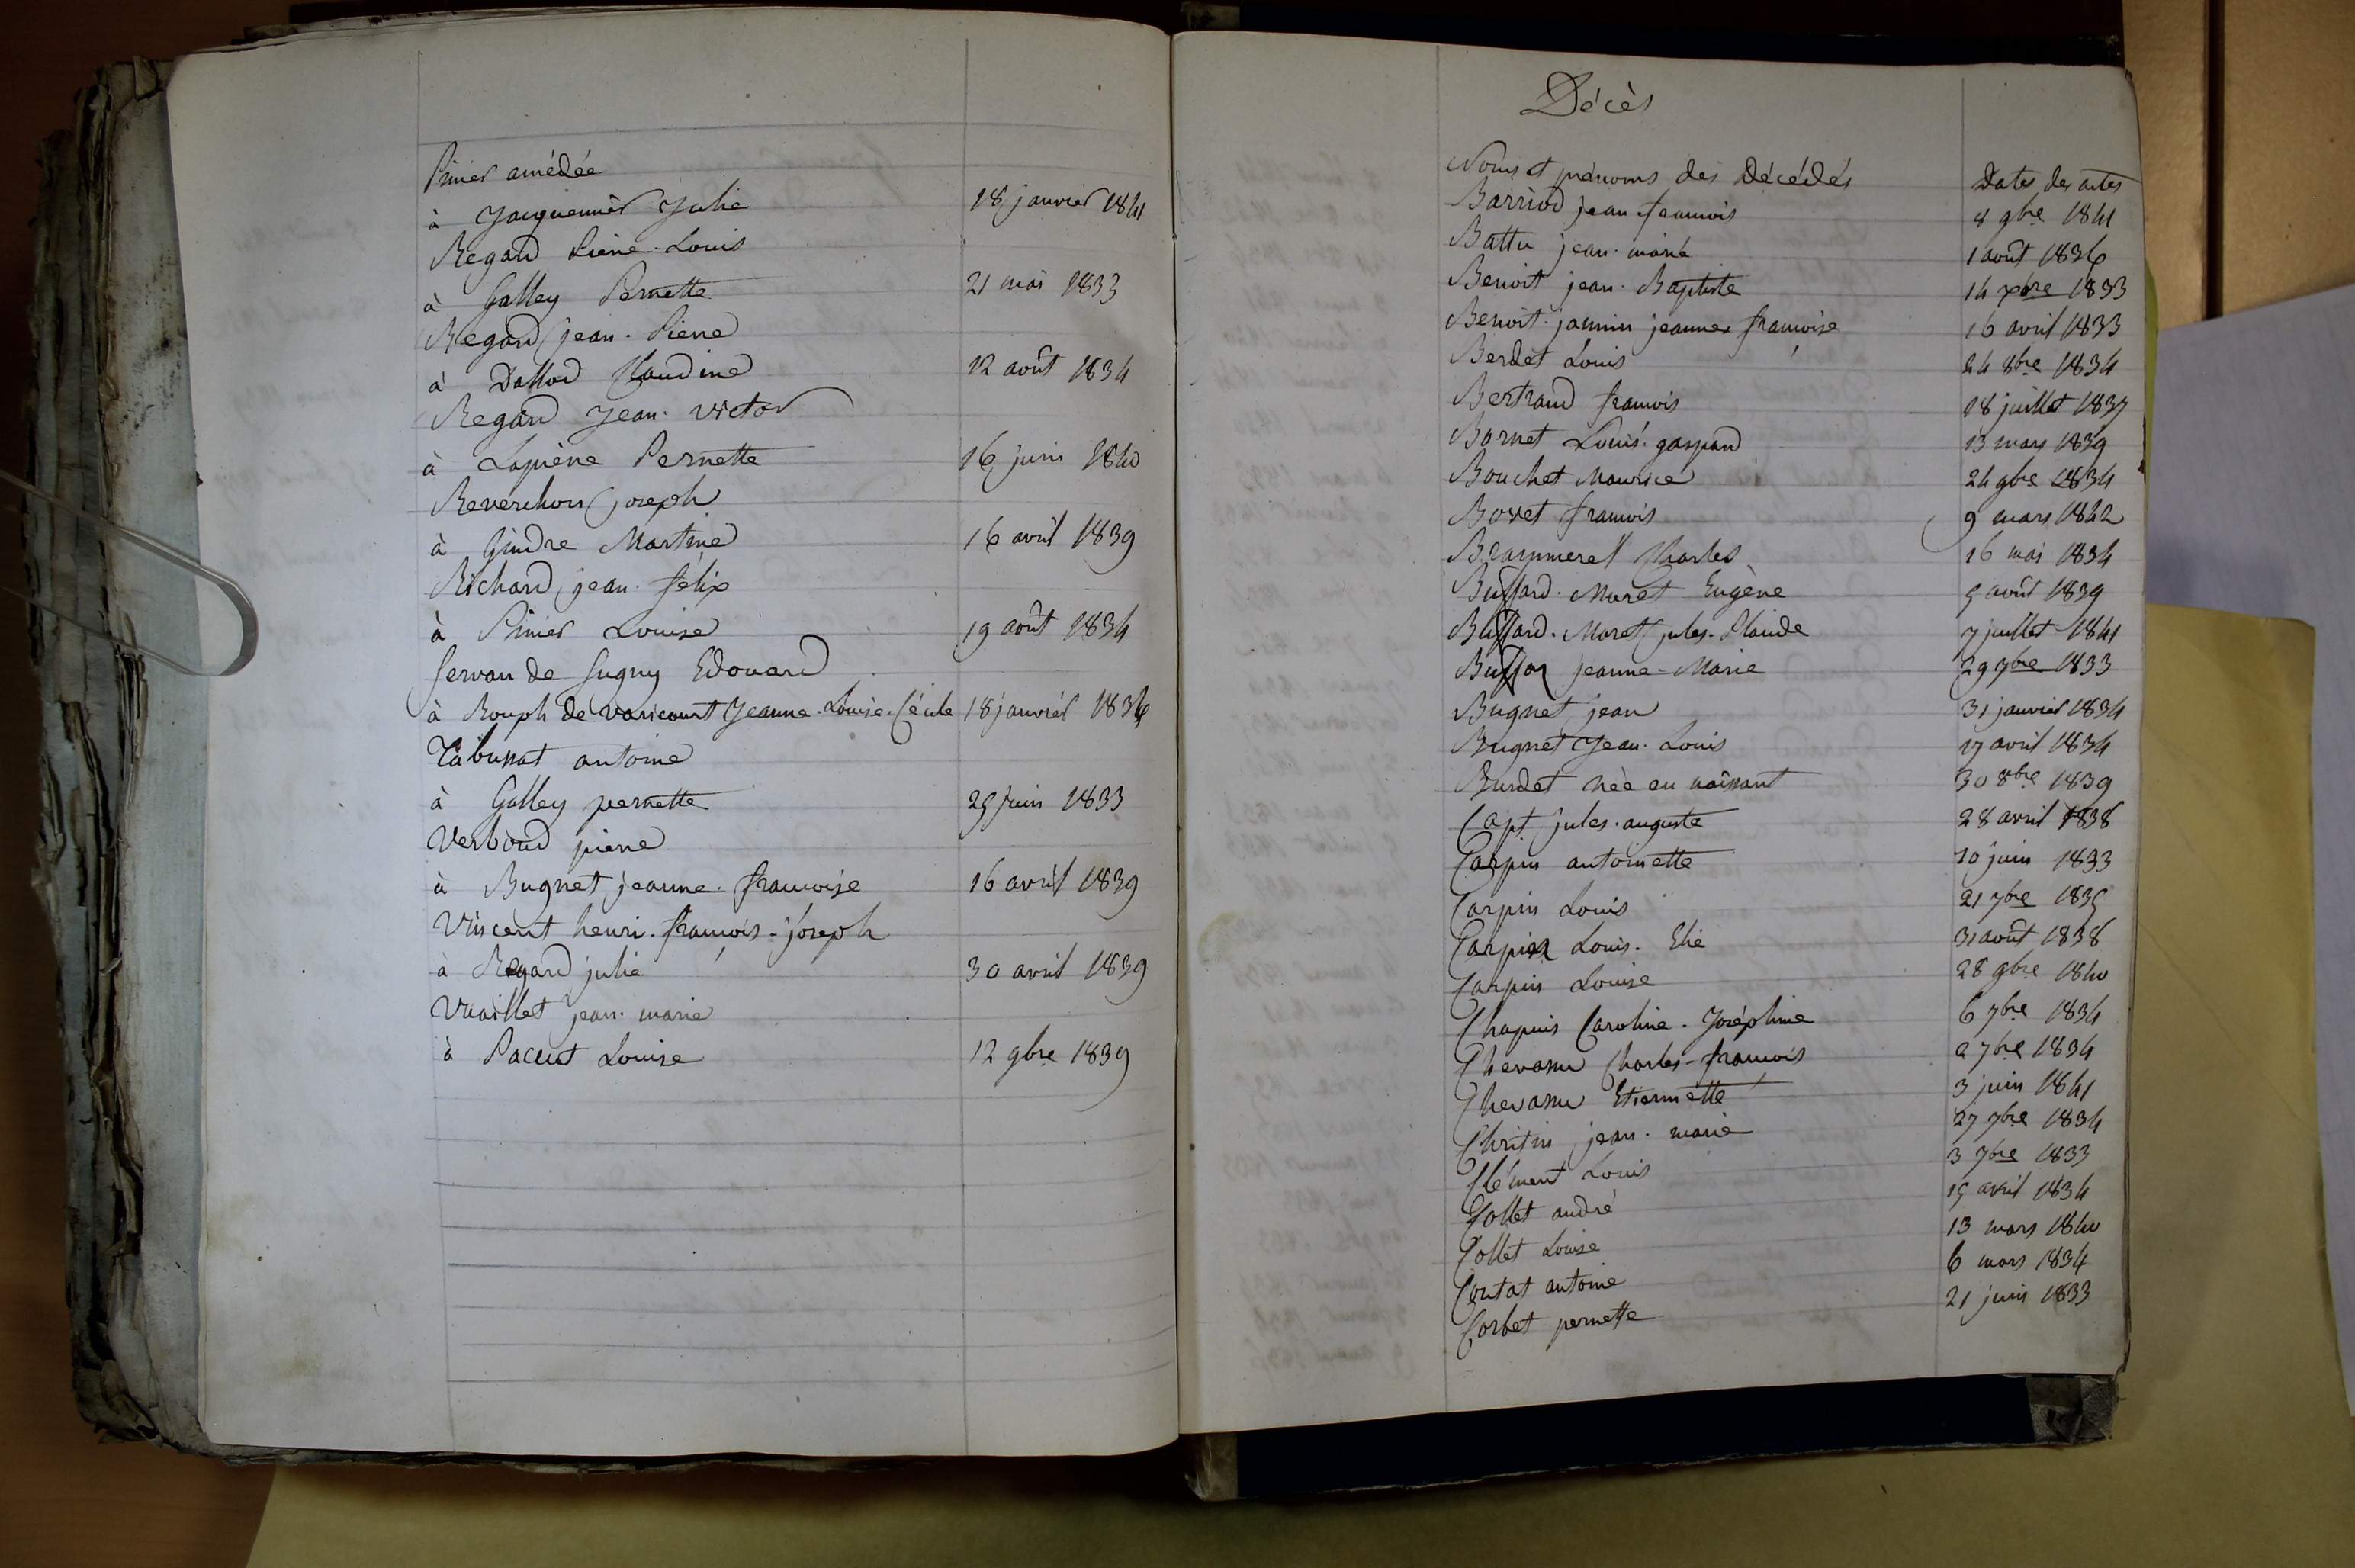 Prinier amédée
à Jacquemier Julie 18 janvier 1841
Regard Pierre-Louis
à Galley Pernette 21 mai 1833
Regard jean-Pierre
à Dallod Claudine 12 août 1834
Regard Jean-Victor
à Lapierre Pernette 16 juin 1840
Reverchon joseph
à Gindre Martine 16 avril 1839
Richard jean-félix
à Prinier Louise 19 août 1834
Servan de Sugny Edouard
à Rouph de varicourt Jeanne-Louise-Cécile 18 janvier 1836
Tabussat antoine
à Galley pernette 25 juin 1833
Verboud pierre
à Bugnet jeanne-françoise 16 avril 1839
Vincent henri-françois-joseph
à Regard julie 30 avril 1839
Vuaillet jean-marie
à Pacent Louise 12 9bre 1839
Décès
Noms et prénoms des Décédés Dates des actes
Barriod jean françois 4 9bre 1841
Battu jean-marie 1 août 1836
Benoit jean-Baptiste 14 xbre 1833
Benoit-jannin jeanne françoise 16 avril 1833
Berdet Louis 24 8bre 1834
Bertrand françois 18 juillet 1837
Bornet Louis-gaspard 13 mars 1839
Bouchet Maurice 24 9bre 1834
Bovet françois 9 mars 1842
Brammerel Charles 16 mai 1834
Buffard-Moret Eugène 5 août 1839
Buffard-Moret jules-Claude 7 juillet 1841
Buffon jeanne-Marie 29 7bre 1833
Bugnet jean 31 janvier 1834
Bugnet Jean-Louis 17 avril 1834
Burdet née en naissant 30 8bre 1839
Capt jules-auguste 28 avril 1838
Carpin antoinette 10 juin 1833
Carpin Louis 21 7bre 1835
Carpin Louis-Elie 31 août 1838
Carpin Louise 28 9bre 1840
Chapuis Caroline-Joséphine 6 7bre 1834
Chevassu Charles-françois 2 7bre 1834
Chevassu Etiennette 3 juin 1841
Christin jean-marie 27 7bre 1834
Clément Louis 3 7bre 1833
Collet andré 15 avril 1834
Collet Louise 13 mars 1840
Contat antoine 6 mars 1834
Corbet pernette 21 juin 1833